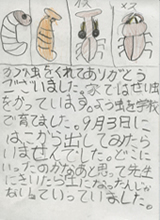 オス
メス
カブト虫をくれてありがとう
ございました。なではせい虫
をかっています。よう虫を学校
で育てました。9月3日に
はこから出してみたら
いませんでした。どこに
いったのかなあと思って先生
にきいたら土になったんじゃ
ない。といっていました。